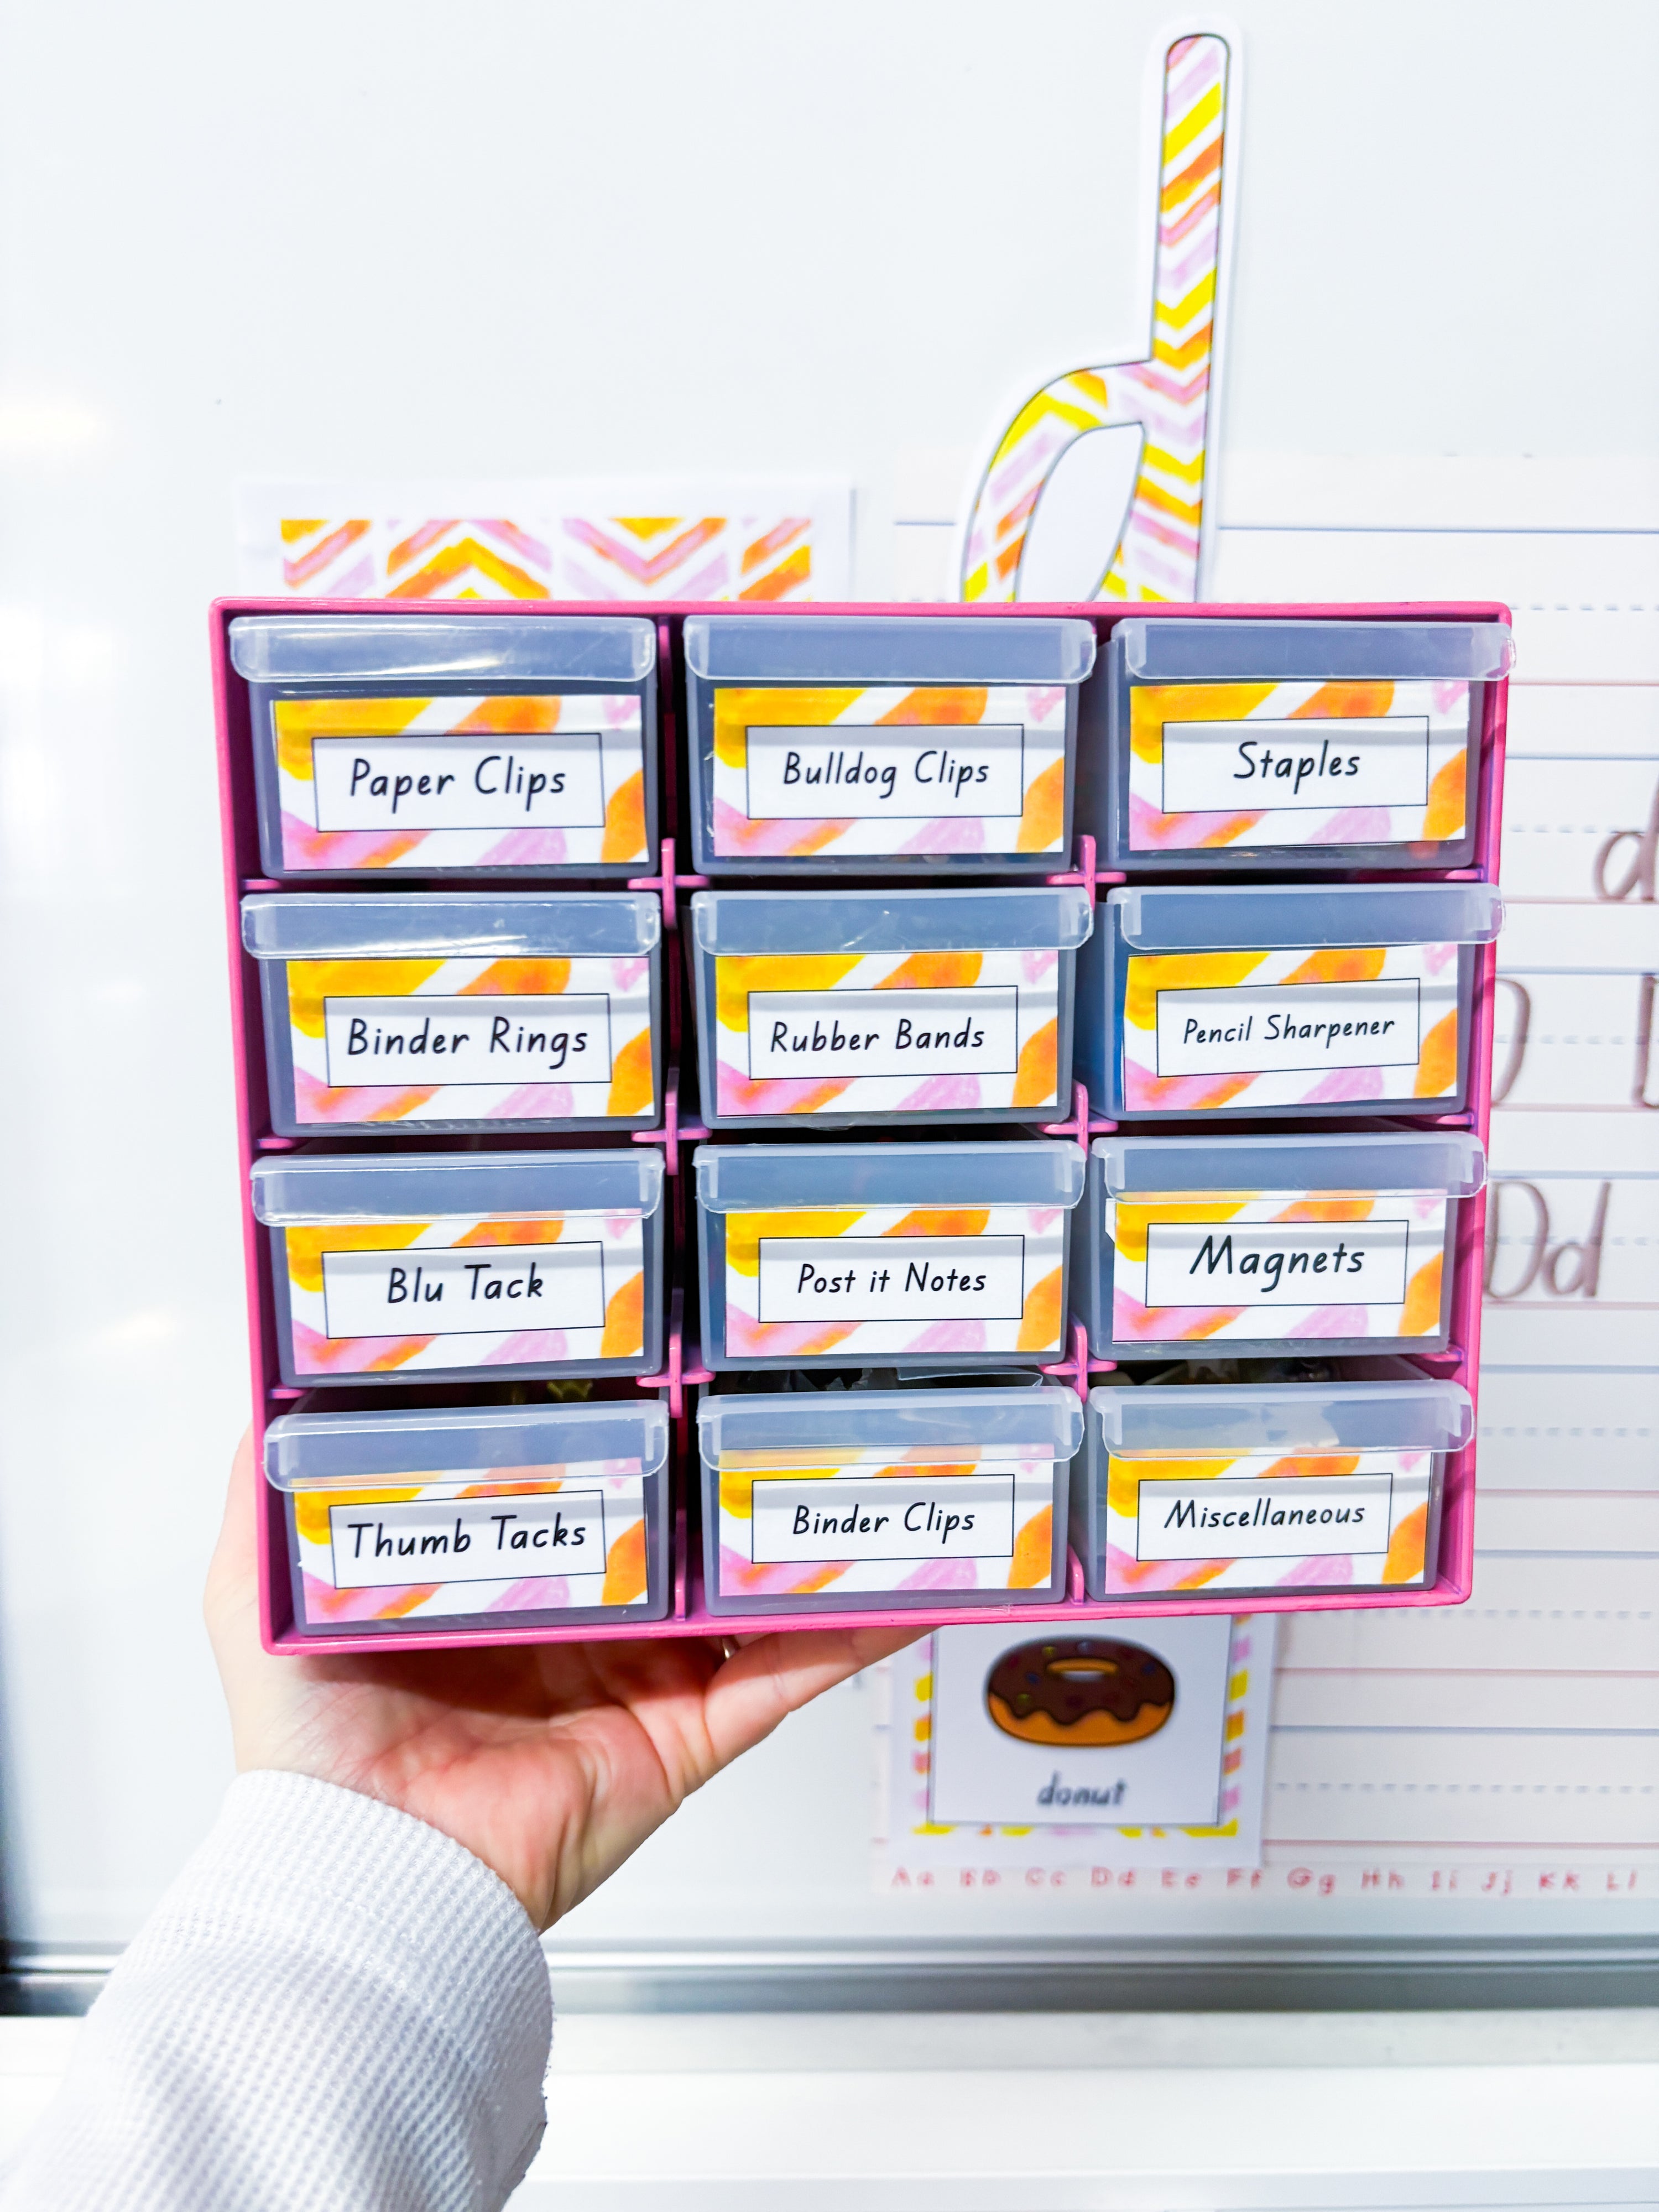 d
Paper Clips
Bulldog Clips
Staples
Binder Rings
Rubber Bands
Pencil Sharpener
Blu Tack
Post it Notes
Magnets
Thumb Tacks
Binder Clips
Miscellaneous
d
D
Dd
donut
Aa Bb Cc Dd Ee Ff Gg Hh Ii Jj Kk Ll